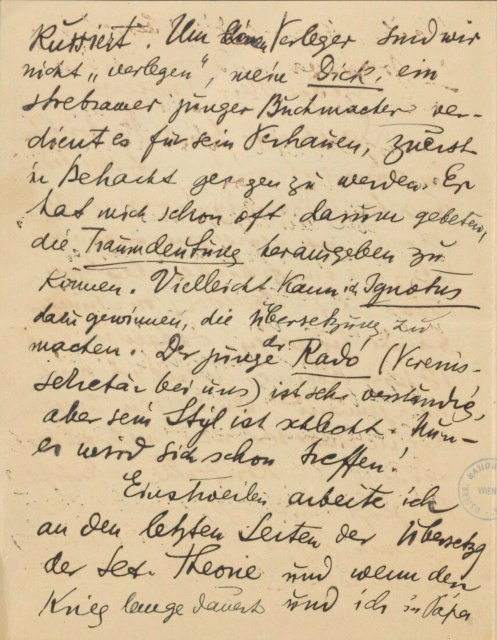 kussiert. Um einen Verleger sind wir
nicht „verlegen", mein Dick, ein
strebsamer junger Buchmacher ver-
dient es für sein Vertrauen, zuerst
in Betracht gezogen zu werden. Er
hat mich schon oft darum gebeten,
die Traumdeutung herausgeben zu
können. Vielleicht kann ich Ignotus
dazu gewinnen, die Übersetzung zu
machen. Der junge Dr Radó (Vereins-
sekretär bei uns) ist sehr verständig,
aber sein Styl ist schlecht. Nun –
es wird sich schon treffen!
Einstweilen arbeite ich
an den letzten Seiten der Übersetzg
der Sex. Theorie und wenn der
Krieg lange dauert und ich in Pápa
WIEN